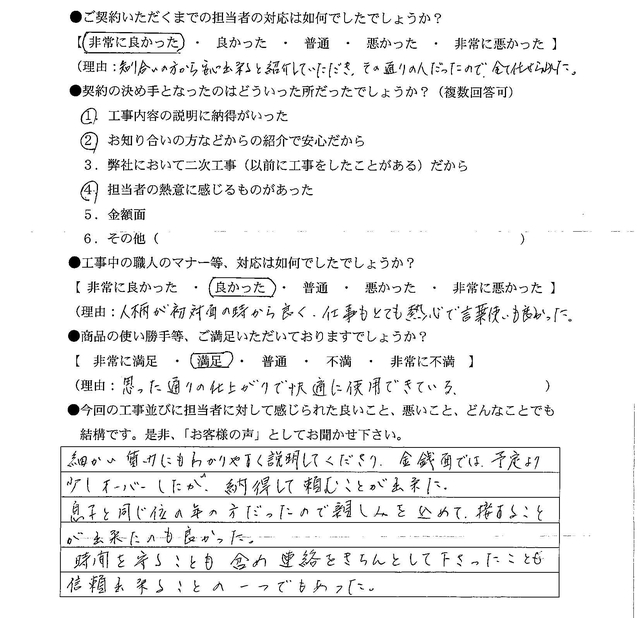 ●ご契約いただくまでの担当者の対応は如何でしたでしょうか？
【 非常に良かった ・ 良かった ・ 普通 ・ 悪かった ・ 非常に悪かった 】
（理由：知り合いの方から安心出来ると紹介していただき、その通りの人だったので、全て任せられた。
●契約の決め手となったのはどういった所だったでしょうか？（複数回答可）
1．工事内容の説明に納得がいった
2．お知り合いの方などからの紹介で安心だから
3．弊社において二次工事（以前に工事をしたことがある）だから
4．担当者の熱意に感じるものがあった
5．金額面
6．その他（ ）
●工事中の職人のマナー等、対応は如何でしたでしょうか？
【 非常に良かった ・ 良かった ・ 普通 ・ 悪かった ・ 非常に悪かった 】
（理由：人柄が初対面の時から良く、仕事もとても熱心で言葉使いも良かった。
●商品の使い勝手等、ご満足いただいておりますでしょうか？
【 非常に満足 ・ 満足 ・ 普通 ・ 不満 ・ 非常に不満 】
（理由：思った通りの仕上がりで快適に使用できている、 ）
●今回の工事並びに担当者に対して感じられた良いこと、悪いこと、どんなことでも
結構です。是非、「お客様の声」としてお聞かせ下さい。
細かい質問にもわかりやすく説明してくださり、金銭面では、予定より
少しオーバーしたが、納得して頼むことが出来た。
息子と同じ位の年の方だったので親しみを込めて、接すること
が出来たのも良かった。
時間を守ることも含め連絡をきちんとして下さったことも
信頼出来ることの一つでもあった。